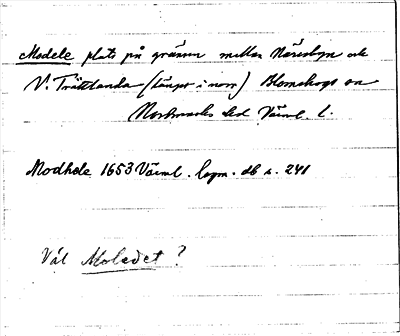 Modele plats på gränsen mellan Näresbyn och
V. Trättlanda (längst i norr) Blomskogs sn
Nordmarks hd Värml. l.
Modhele 1653 Värml. lagm. db s. 241
Väl Moledet ?